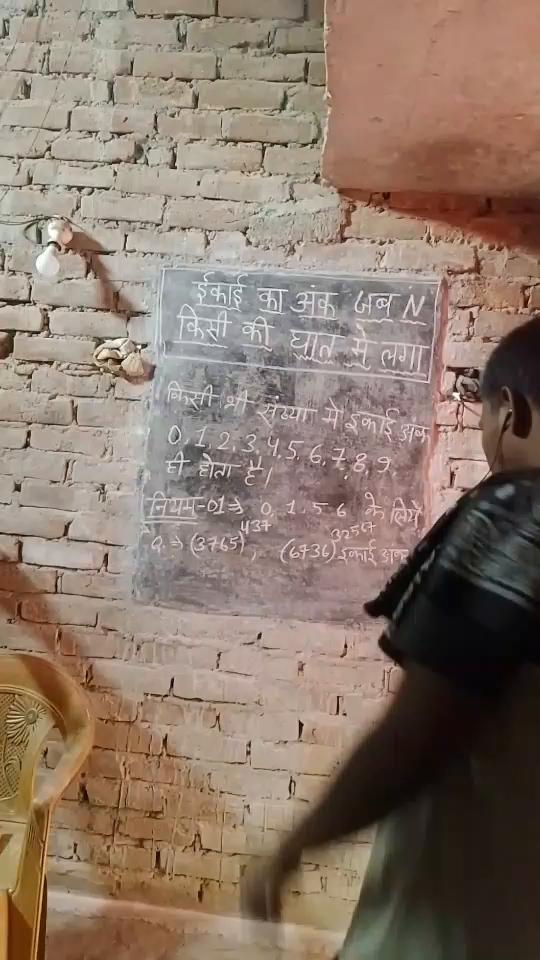 ईकाई का अंक जब N
किसी की घात मे लगा
किसी भी संख्या मे इकाई अंक
0, 1, 2, 3, 4, 5, 6, 7, 8, 9,
ही होता है।
नियम-01⇒ 0, 1, 5, 6 के लिये
Q.⇒ (3765)⁴³⁷, (6736)³²⁵⁶⁷ इकाई अंक